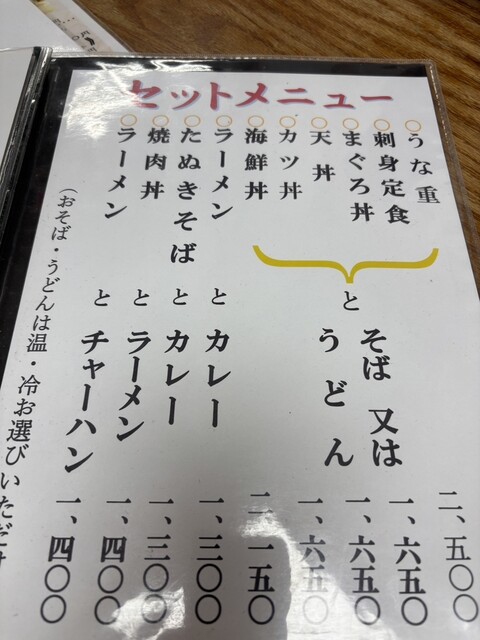 セットメニュー
○うな重
○刺身定食
○まぐろ丼
○天丼
○カツ丼
○海鮮丼
と
そば 又は
うどん
○ラーメン と カレー
○たぬきそば と カレー
○焼肉丼 と ラーメン
○ラーメン と チャーハン
二、五〇〇
一、六五〇
一、六五〇
一、六五〇
二、一五〇
一、三〇〇
一、三〇〇
一、四〇〇
一、四〇〇
（おそば・うどんは温・冷お選びいただけ